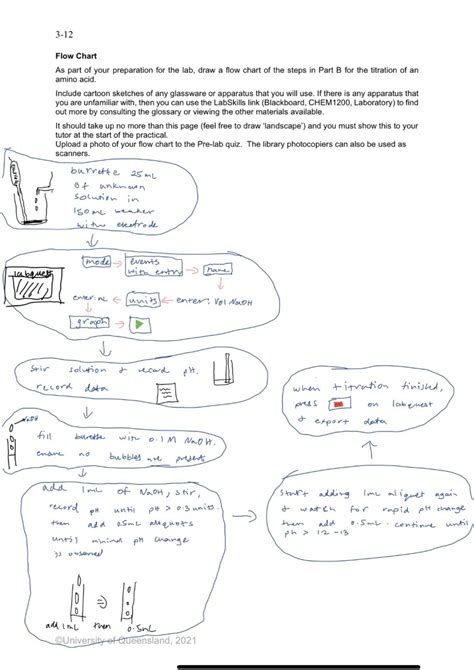 3-12
Flow Chart
As part of your preparation for the lab, draw a flow chart of the steps in Part B for the titration of an
amino acid.
Include cartoon sketches of any glassware or apparatus that you will use. If there is any apparatus that
you are unfamiliar with, then you can use the LabSkills link (Blackboard, CHEM1200, Laboratory) to find
out more by consulting the glossary or viewing the other materials available.
It should take up no more than this page (feel free to draw 'landscape') and you must show this to your
tutor at the start of the practical.
Upload a photo of your flow chart to the Pre-lab quiz. The library photocopiers can also be used as
scanners.
burrette 25mL
of unknown
solution in
150mL beaker
with electrode
labquest
mode → events
with entry → name
enter: mL ← units ← enter: Vol NaOH
graph →
stir solution + record pH.
record data
NaOH
fill burette with 0.1M NaOH.
ensure no bubbles are present
add 1mL of NaOH, stir,
record pH until pH > 0.3 units.
then add 0.5mL aliquots
until minimal pH change
is observed
add 1mL then 0.5mL
start adding 1mL aliquot again
+ watch for rapid pH change
then add 0.5mL. continue until
ph > 12-13
when titration finished,
press on labquest
+ export data
©University of Queensland, 2021